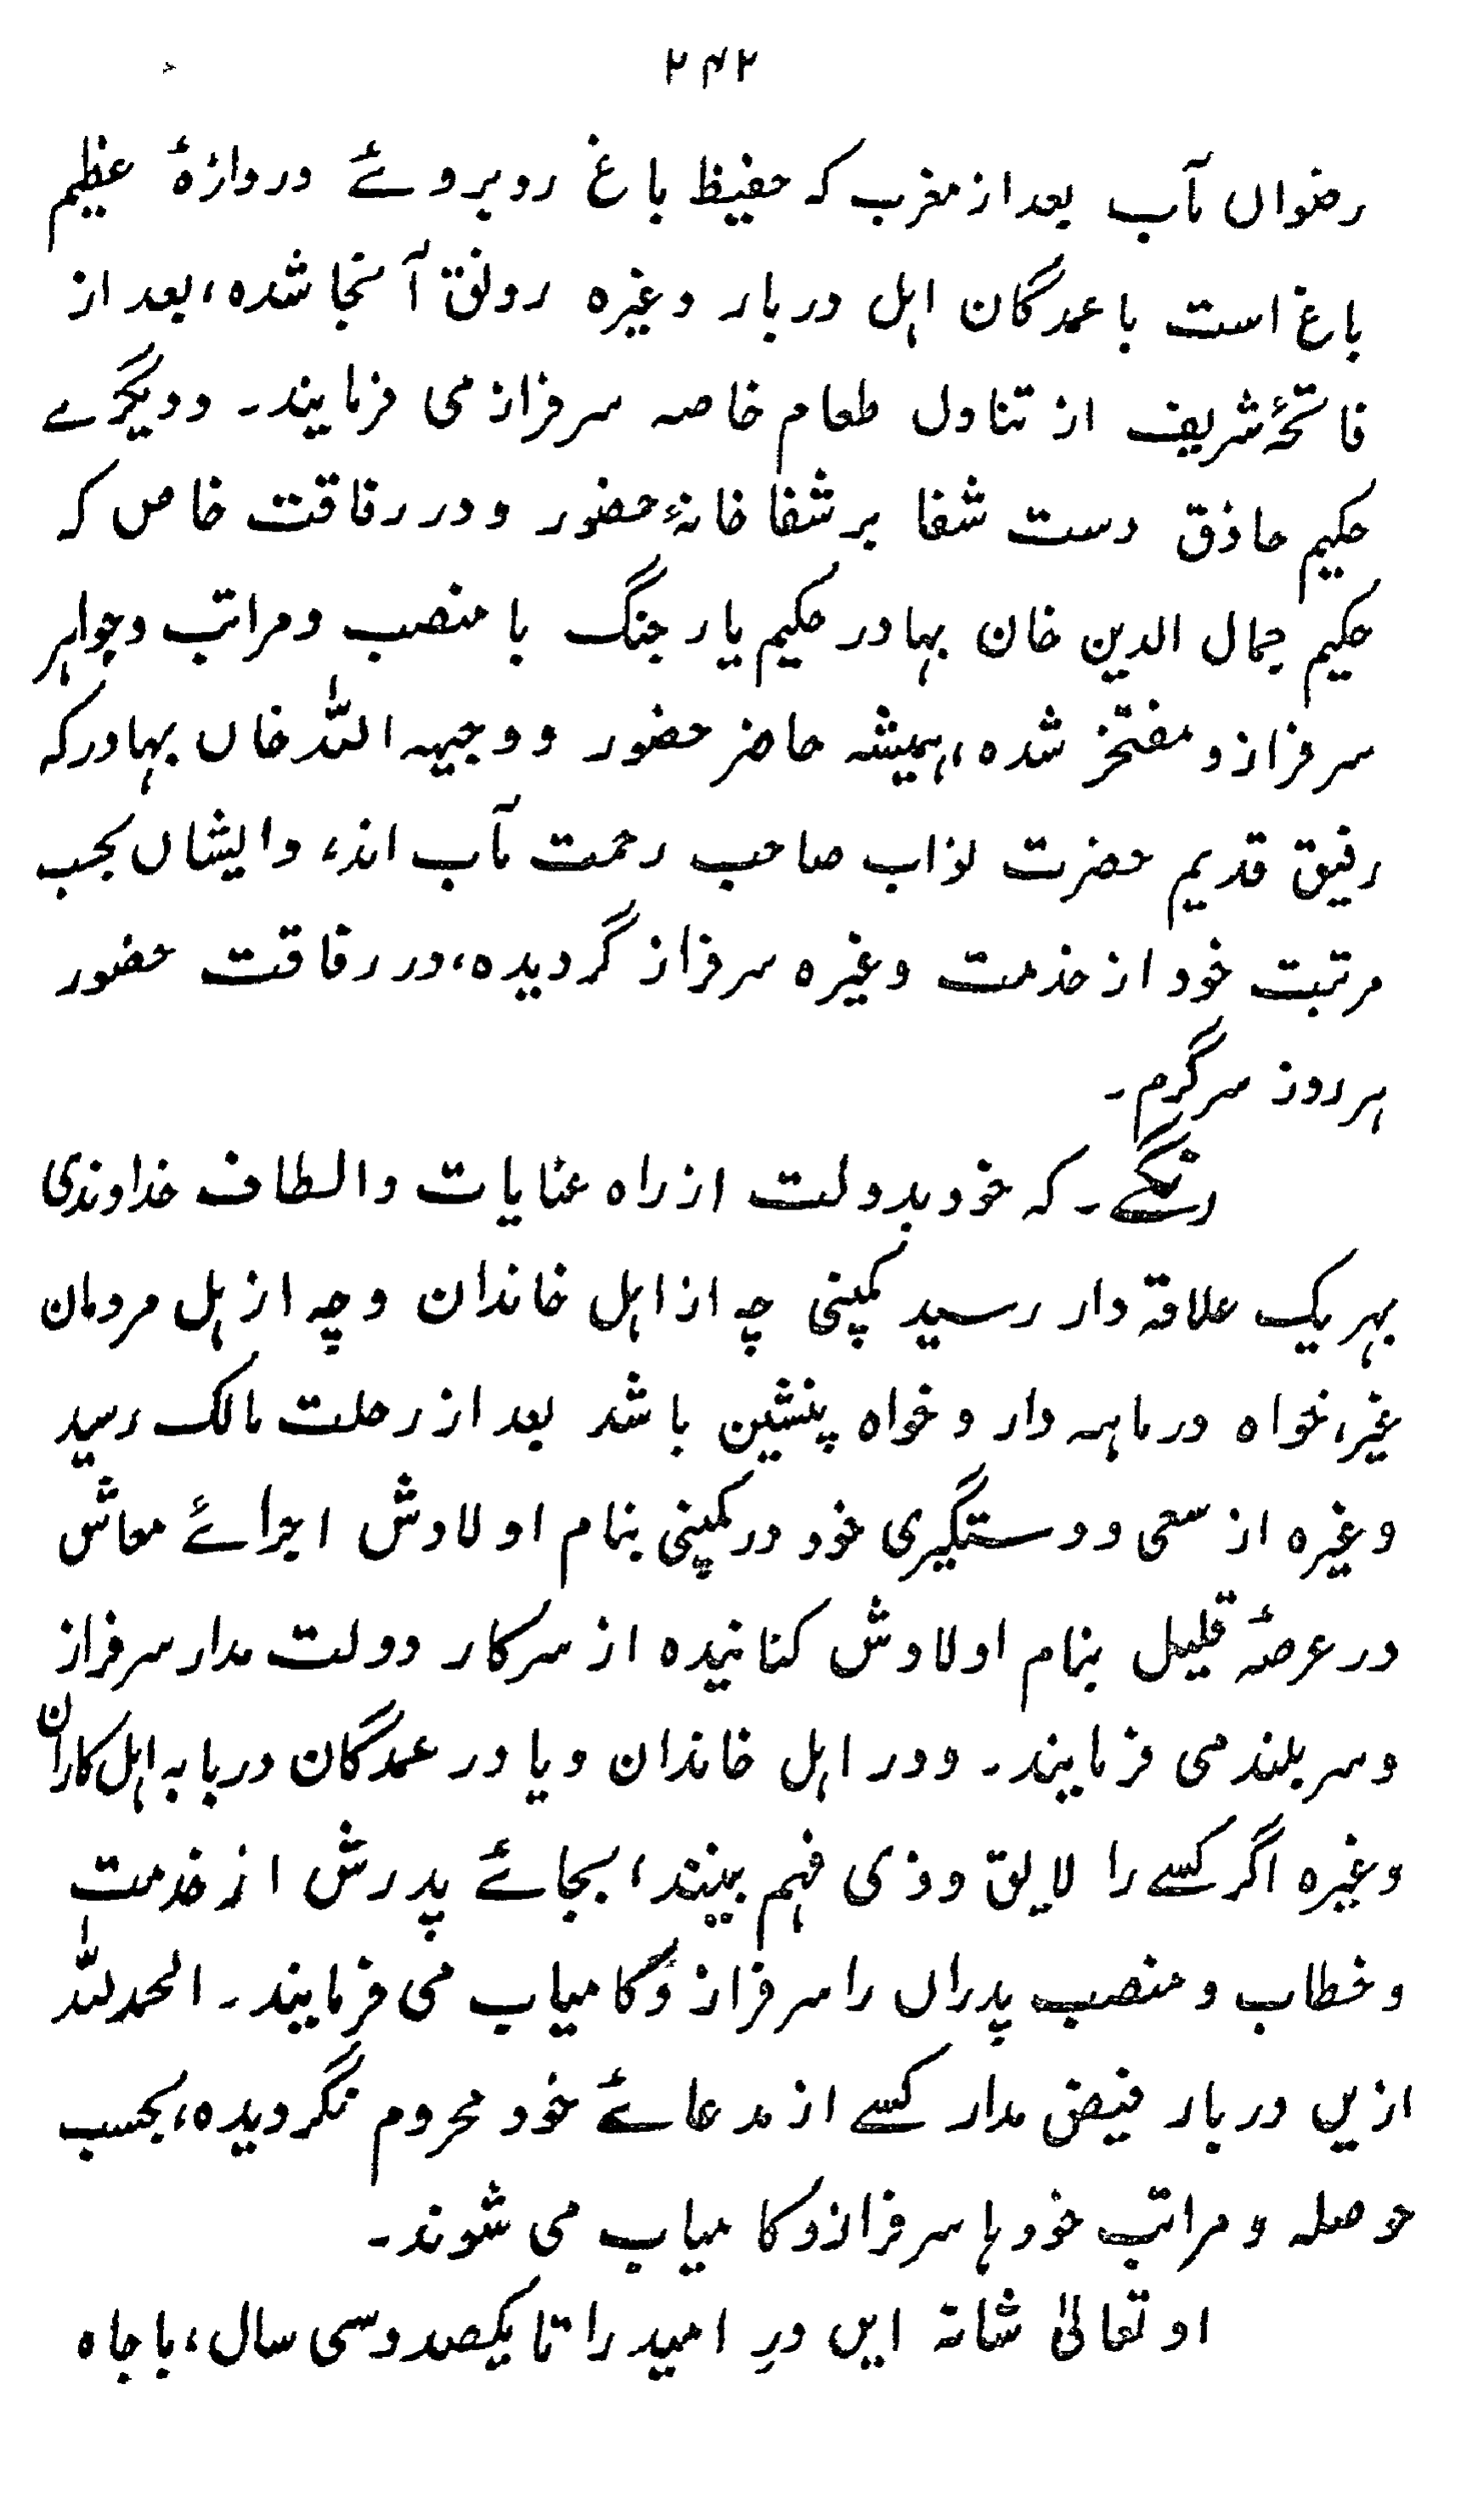 ۲۴۲
رضواں مآب بعد از مغرب کہ حفیظ باغ روبروئے دروازۂ عظیم
باغ است با عمدگان اہل دربار وغیرہ رونق آنجا شدہ، بعد از
فاتحۂ شریف از تناول طعام خاصہ سرفراز می فرمایند۔ ودیگرے
حکیم حاذق دست شفا بر شفا خانۂ حضور و در رفاقت خاص کہ
حکیم جمال الدین خان بہادر حکیم یار جنگ با منصب و مراتب وجواہر
سرفراز و مفتخر شدہ، ہمیشہ حاضر حضور و وجیہہ اللہ خاں بہادر کہ
رفیق قدیم حضرت نواب صاحب رحمت مآب اند، وایشاں بحسب
مرتبت خود از خدمت وغیرہ سرفراز گردیدہ، در رفاقت حضور
ہر روز سرگرم۔
رنگے۔ کہ خود بدولت از راہ عنایات والطاف خداوندی
بہر یک علاقہ دار رسید کمپنی چہ از اہل خاندان وچہ از ہل مردمان
غیر، خواہ در ماہہ دار و خواہ پنشین باشد بعد از رحلت مالک رسید
وغیرہ از سعی و دستگیری خود در کمپنی بنام اولادش اجرائے معاش
در عرصۂ قلیل بنام اولادش کنانیدہ از سرکار دولت مدار سرفراز
وسر بلند می فرمایند۔ ودر اہل خاندان ویا در عمدگان دربا بہ اہل کاران
وغیرہ اگر کسے را لایق وذی فہم بینند، بجائے پدرش از خدمت
وخطاب و منصب پدراں را سرفراز وکامیاب می فرمایند۔ الحمدللہ
ازیں دربار فیض مدار کسے از مدعائے خود محروم نگردیدہ، بحسب
حوصلہ و مراتب خودہا سرفراز وکامیاب می شوند۔
او تعالیٰ شانہ ایں درِ امید را تا یکصد وسی سال، باجاہ